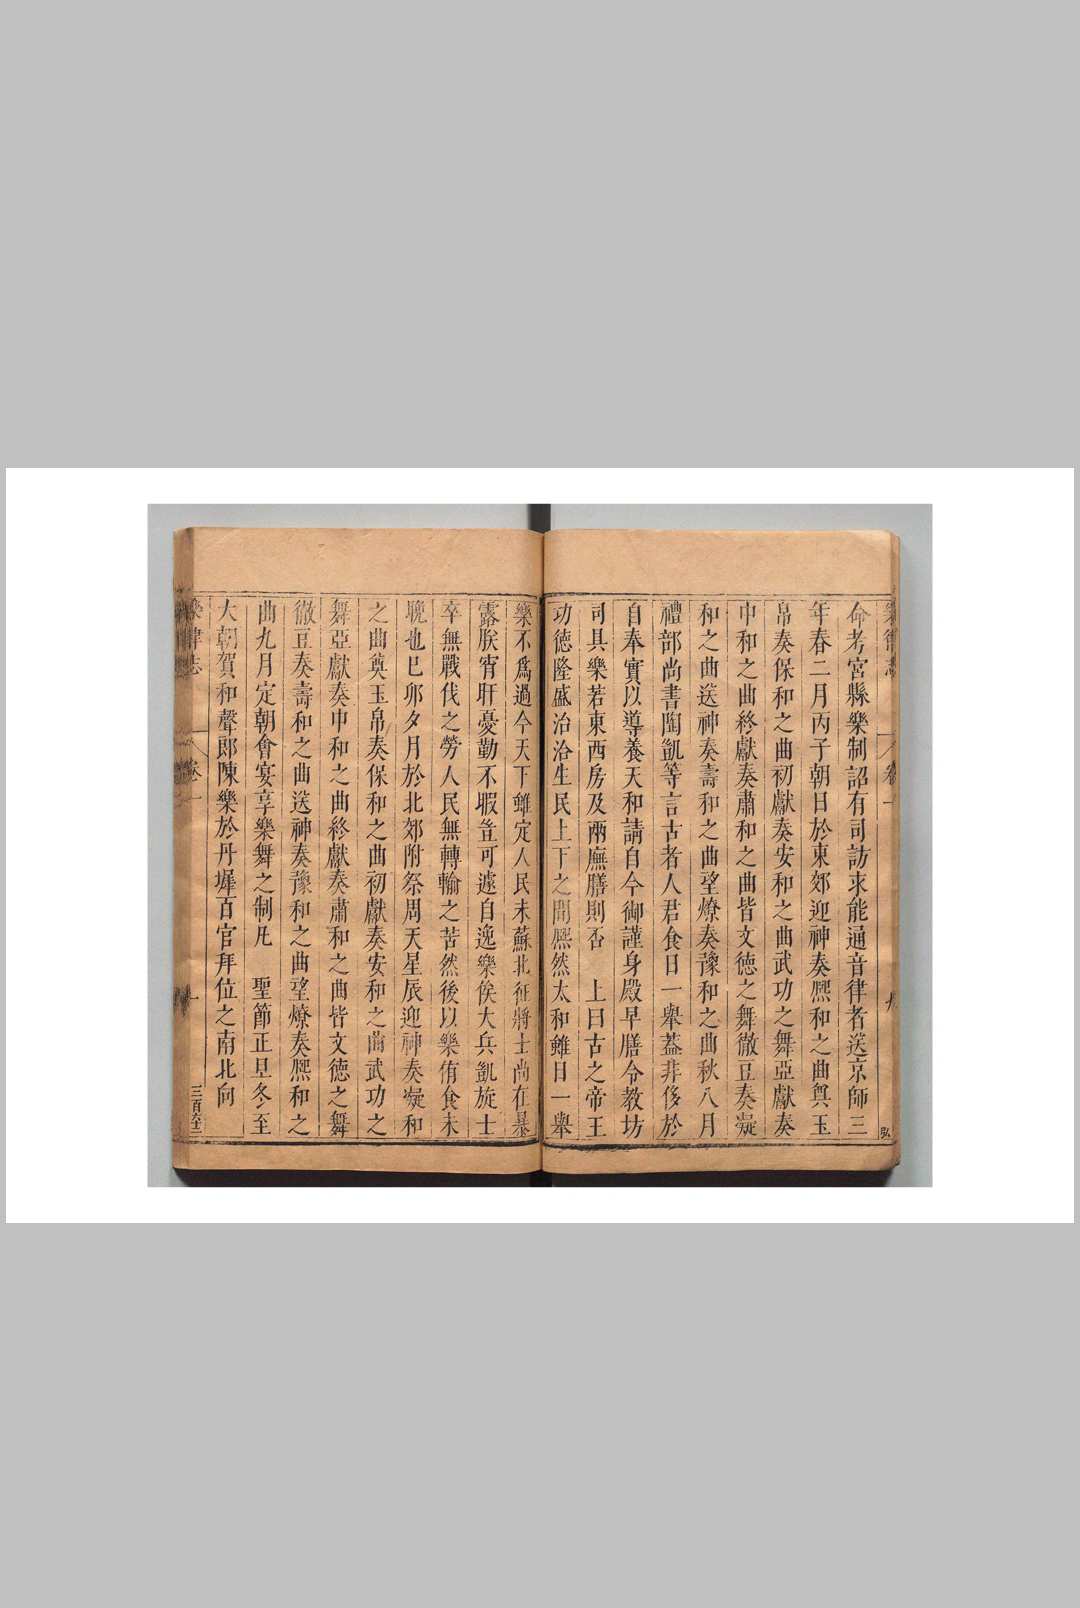 命考宮縣樂制詔有司訪求能通音律者送京師三
年春二月丙子朝日於東郊迎神奏熈和之曲奠玉
帛奏保和之曲初獻奏安和之曲武功之舞亞獻奏
中和之曲終獻奏肅和之曲皆文德之舞徹豆奏凝
和之曲送神奏壽和之曲望燎奏豫和之曲秋八月
禮部尚書陶凱等言古者人君食日一舉蓋非侈於
自奉實以導養天和請自今御謹身殿早膳令教坊
司具樂若東西房及兩廡膳則否　上曰古之帝王
功德隆盛治洽生民上下之間熈然太和雖日一舉
樂不爲過今天下雖定人民未蘇北征將士尚在暴
露朕宵旰憂勤不暇豈可遽自逸樂俟大兵凱旋士
卒無戰伐之勞人民無轉輸之苦然後以樂侑食未
晚也巳卯夕月於北郊附祭周天星辰迎神奏凝和
之曲奠玉帛奏保和之曲初獻奏安和之曲武功之
舞亞獻奏中和之曲終獻奏肅和之曲皆文德之舞
徹豆奏壽和之曲送神奏豫和之曲望燎奏熈和之
曲九月定朝會宴享樂舞之制凡　聖節正旦冬至
大朝賀和聲郎陳樂於丹墀百官拜位之南北向
樂律志
卷一